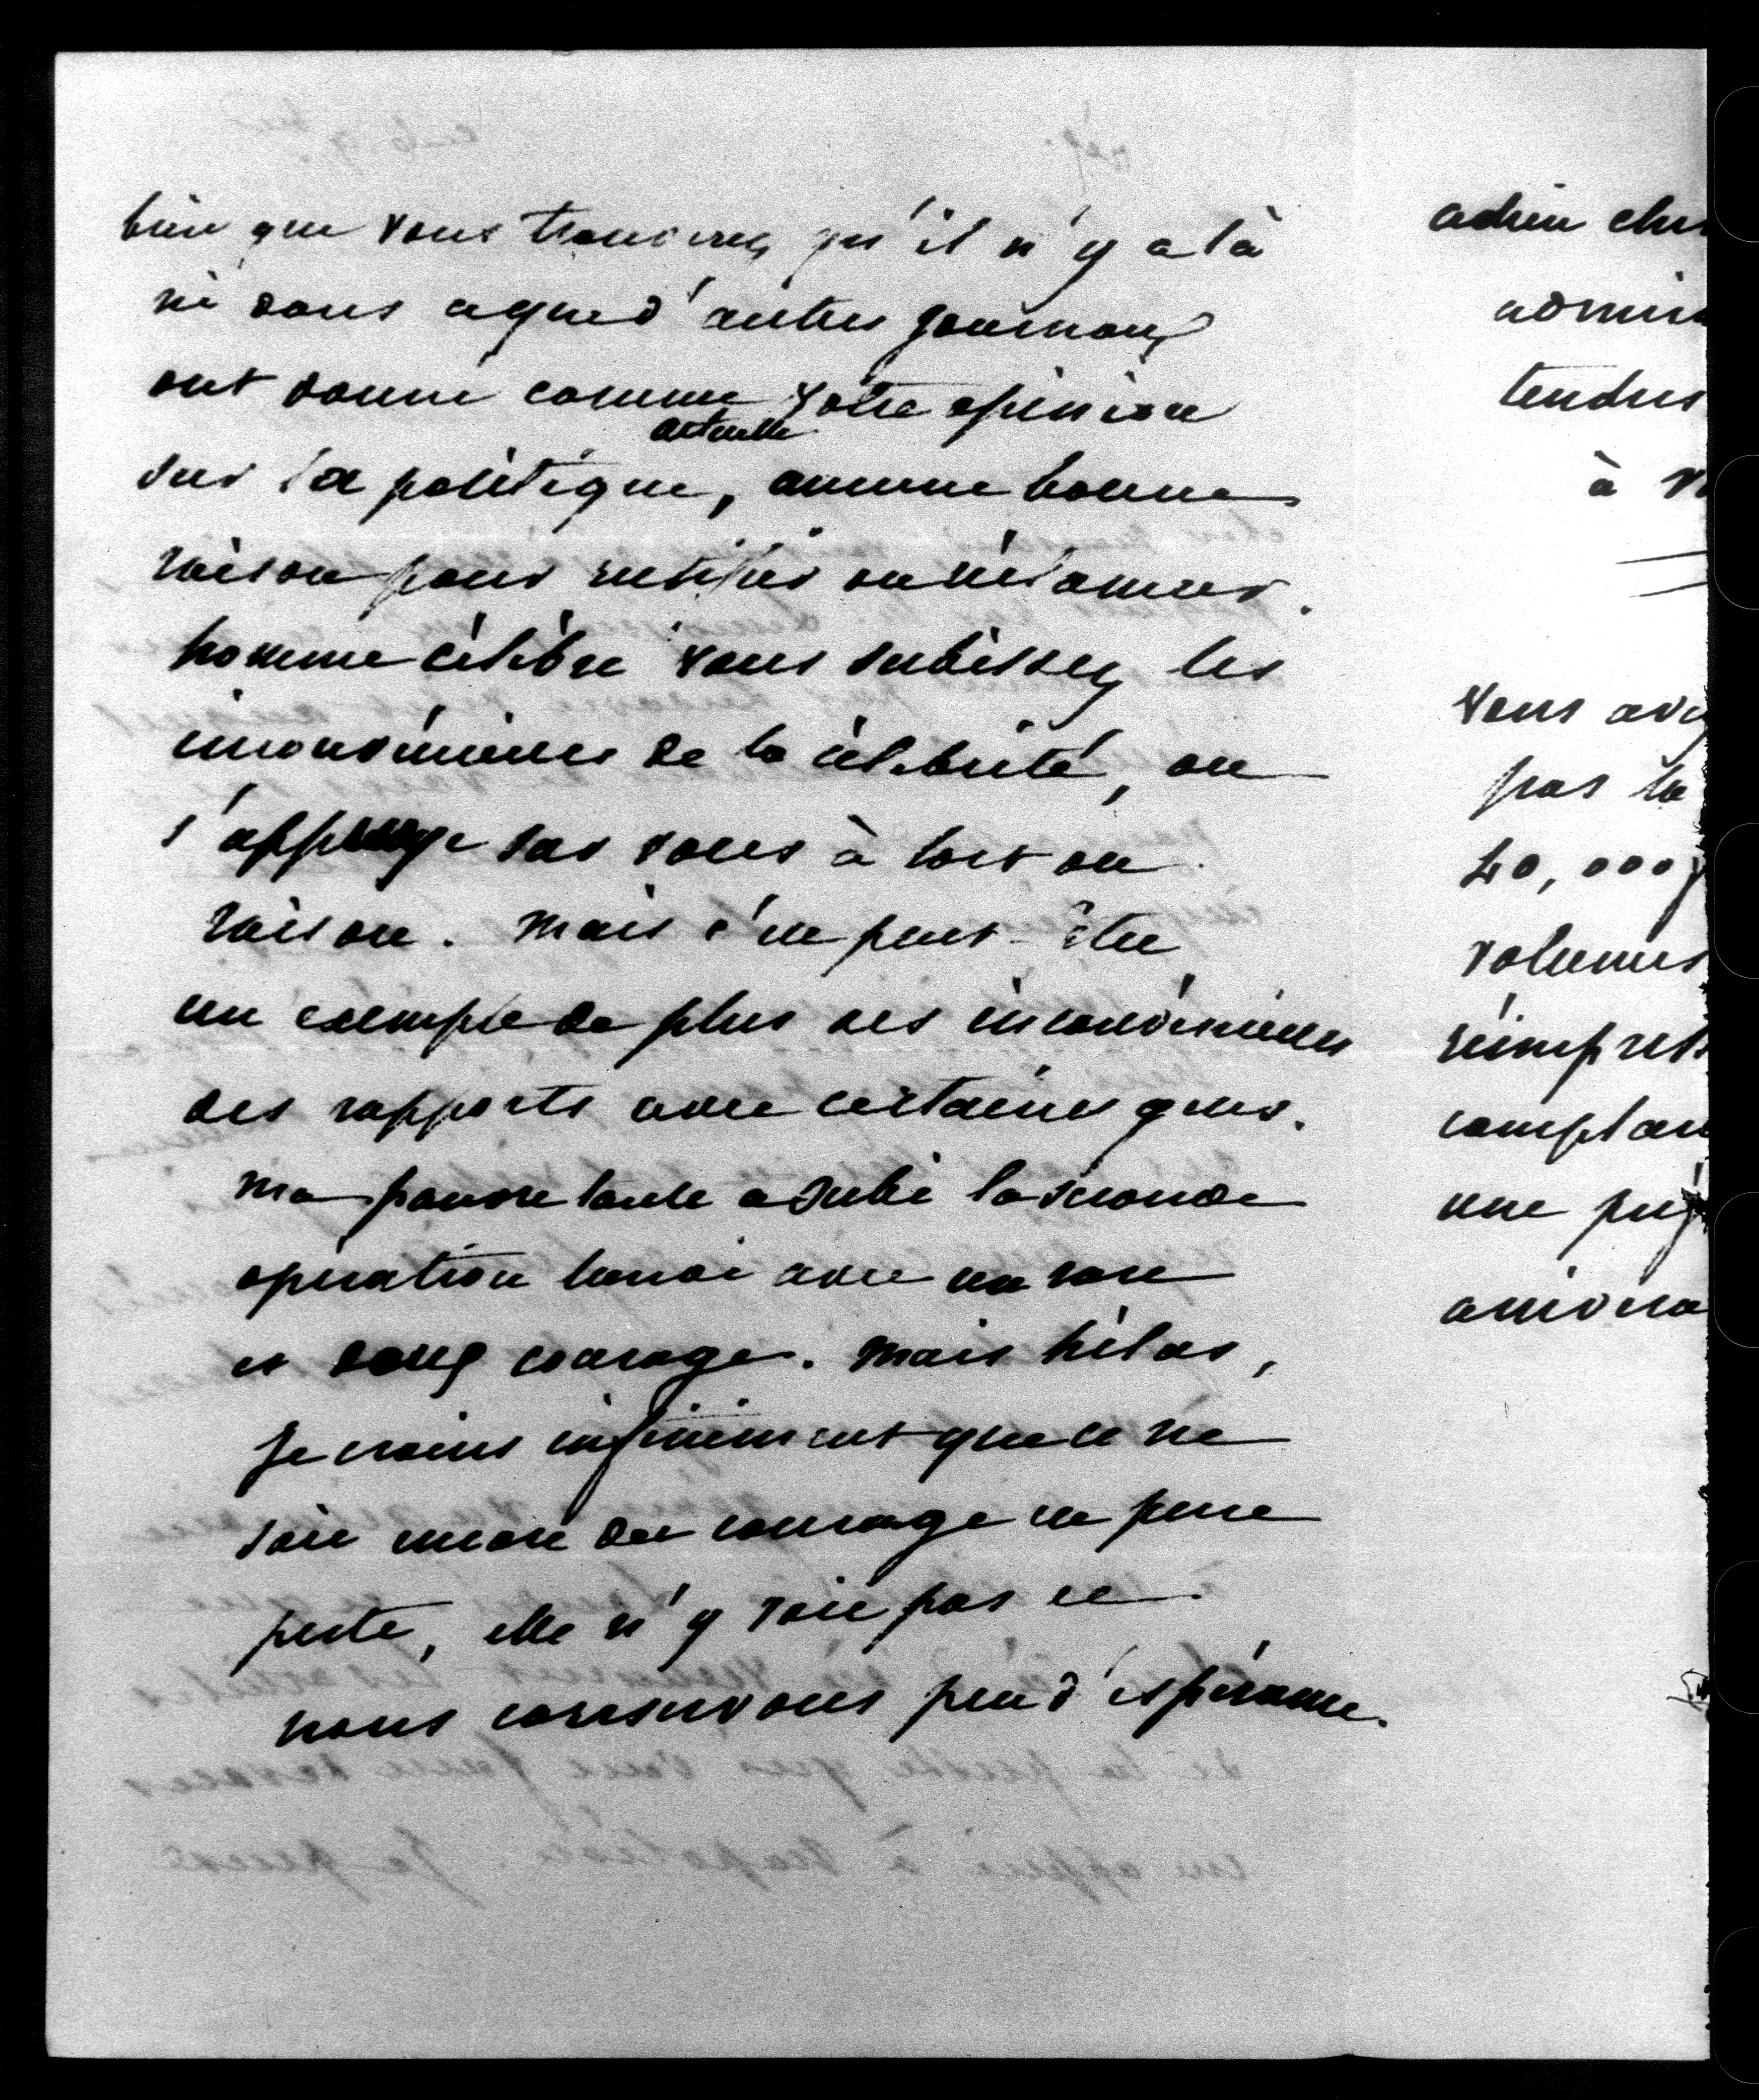 bien que vous trouverez qu'il n'y a là
ni dans ce que d'autres journaux
ont donné comme votre opinion
actuelle
sur la politique, aucune bonne
raison pour rectifier ou réclamer.
homme célèbre vous subissez les
inconvénients de la célébrité, on
s'appuye sur vous à tort ou
raison. Mais c'est peut-être
un exemple de plus des inconvénients
des rapports avec certaines gens.
Ma pauvre tante a subi la seconde
opération lundi avec un rare
et doux courage. Mais hélas,
je crains infiniment que ce ne
soit encore du courage en pure
perte, elle n'y voit pas et
nous conservons peu d'espérance.
adieu cher
admir
tendres
à v
vous avez
pas la
40,000 f
volumes
réimpress
comptan
une préf
arrivera